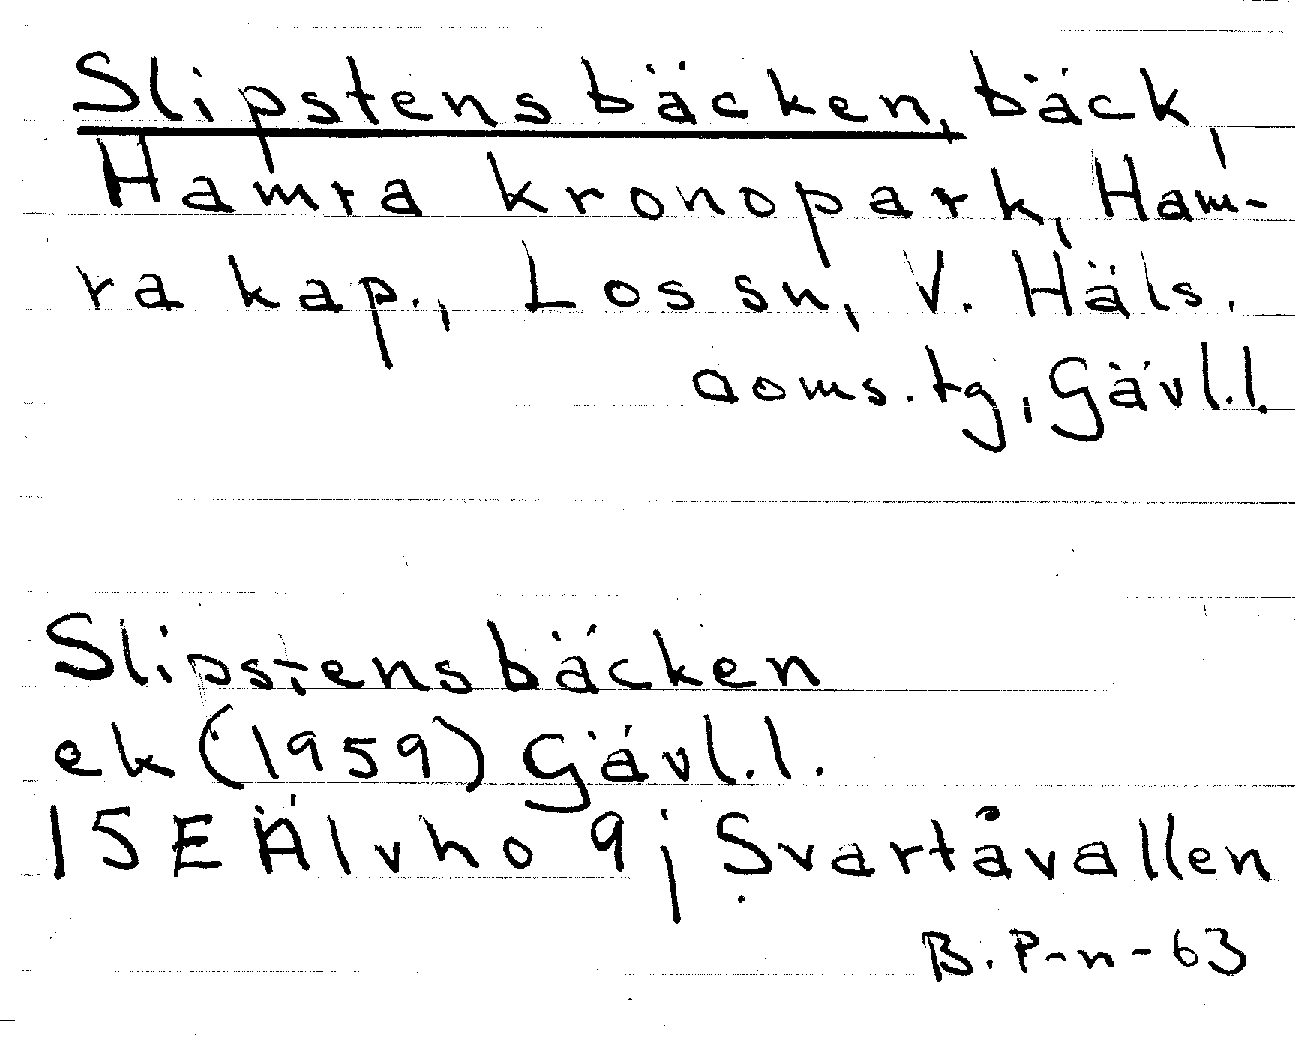 Slipstensbäcken, bäck,
Hamra kronopark, Ham-
ra kap., Los sn, V. Häls.
doms.tg, Gävl.l.
Slipstensbäcken
ek (1959) Gävl.l.
15E Älvho 9j Svartåvallen
B. P-n-63